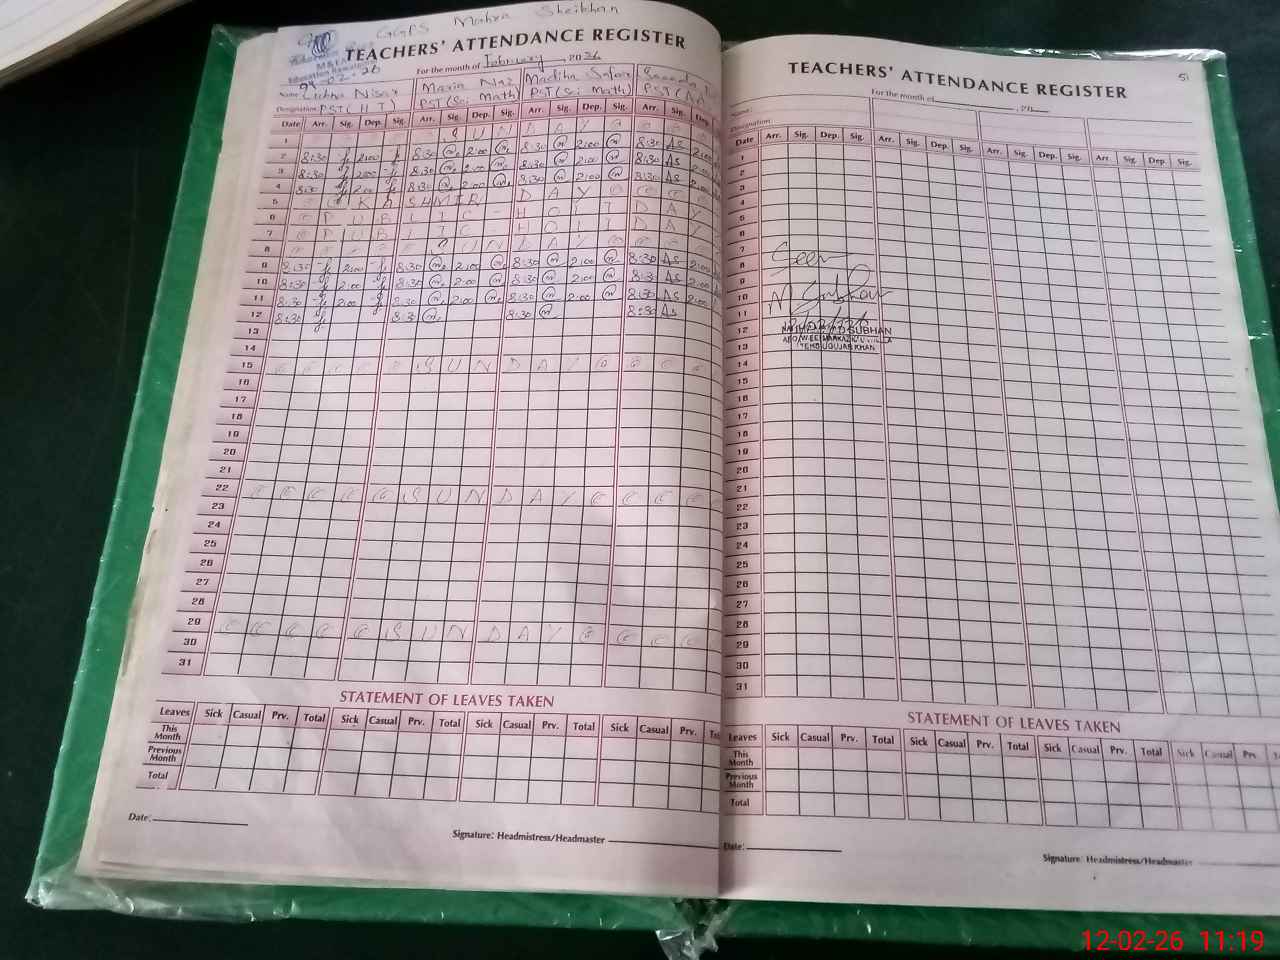 GGPS Mahra Sheikhan
TEACHERS' ATTENDANCE REGISTER
For the month of February, 2026
Name Lubna Nisar Maria Naz Madiha Safdar Saeeda
Designation PST (H T) PST (Sci Math) PST (Sci Math) PST (
Date Arr. Sig. Dep. Sig. Arr. Sig. Dep. Sig. Arr. Sig. Dep. Sig. Arr. Sig. Dep.
1 S U N D A Y
2 8:30 2:00 8:30 2:00 8:30 2:00 8:30 As 2:00
3 8:30 2:00 8:30 2:00 8:30 2:00 8:30 As 2:00
4 8:30 2:00 8:30 2:00 8:30 2:00 8:30 As 2:00
5 K A SHMIR D A Y
6 P U B L I C - H O L I D A Y
7 P U B L I C - H O L I D A Y
8 S U N D A Y
9 8:30 2:00 8:30 2:00 8:30 2:00 8:30 As 2:00
10 8:30 2:00 8:30 2:00 8:30 2:00 8:30 As 2:00
11 8:30 2:00 8:30 2:00 8:30 2:00 8:30 As 2:00
12 8:30 8:30 8:30 8:30 As
13
14
15 S U N D A Y
16
17
18
19
20
21
22 S U N D A Y
23
24
25
26
27
28
29 S U N D A Y
30
31
STATEMENT OF LEAVES TAKEN
Leaves Sick Casual Prv. Total Sick Casual Prv. Total Sick Casual Prv. Total Sick Casual Prv.
This Month
Previous Month
Total
Date:
Signature: Headmistress/Headmaster
51
TEACHERS' ATTENDANCE REGISTER
For the month of , 20
Name:
Designation
Date Arr. Sig. Dep. Sig. Arr. Sig. Dep. Sig. Arr. Sig. Dep. Sig. Arr. Sig. Dep. Sig.
1
2
3
4
5
6
7
8 Seen
9
10 M. Subhan
11
12 SUBHAN
13 TEH GUJAR KHAN
14
15
16
17
18
19
20
21
22
23
24
25
26
27
28
29
30
31
STATEMENT OF LEAVES TAKEN
Leaves Sick Casual Prv. Total Sick Casual Prv. Total Sick Casual Prv. Total Sick Casual Prv.
This Month
Previous Month
Total
Date:
Signature: Headmistress/Headmaster
12-02-26 11:19